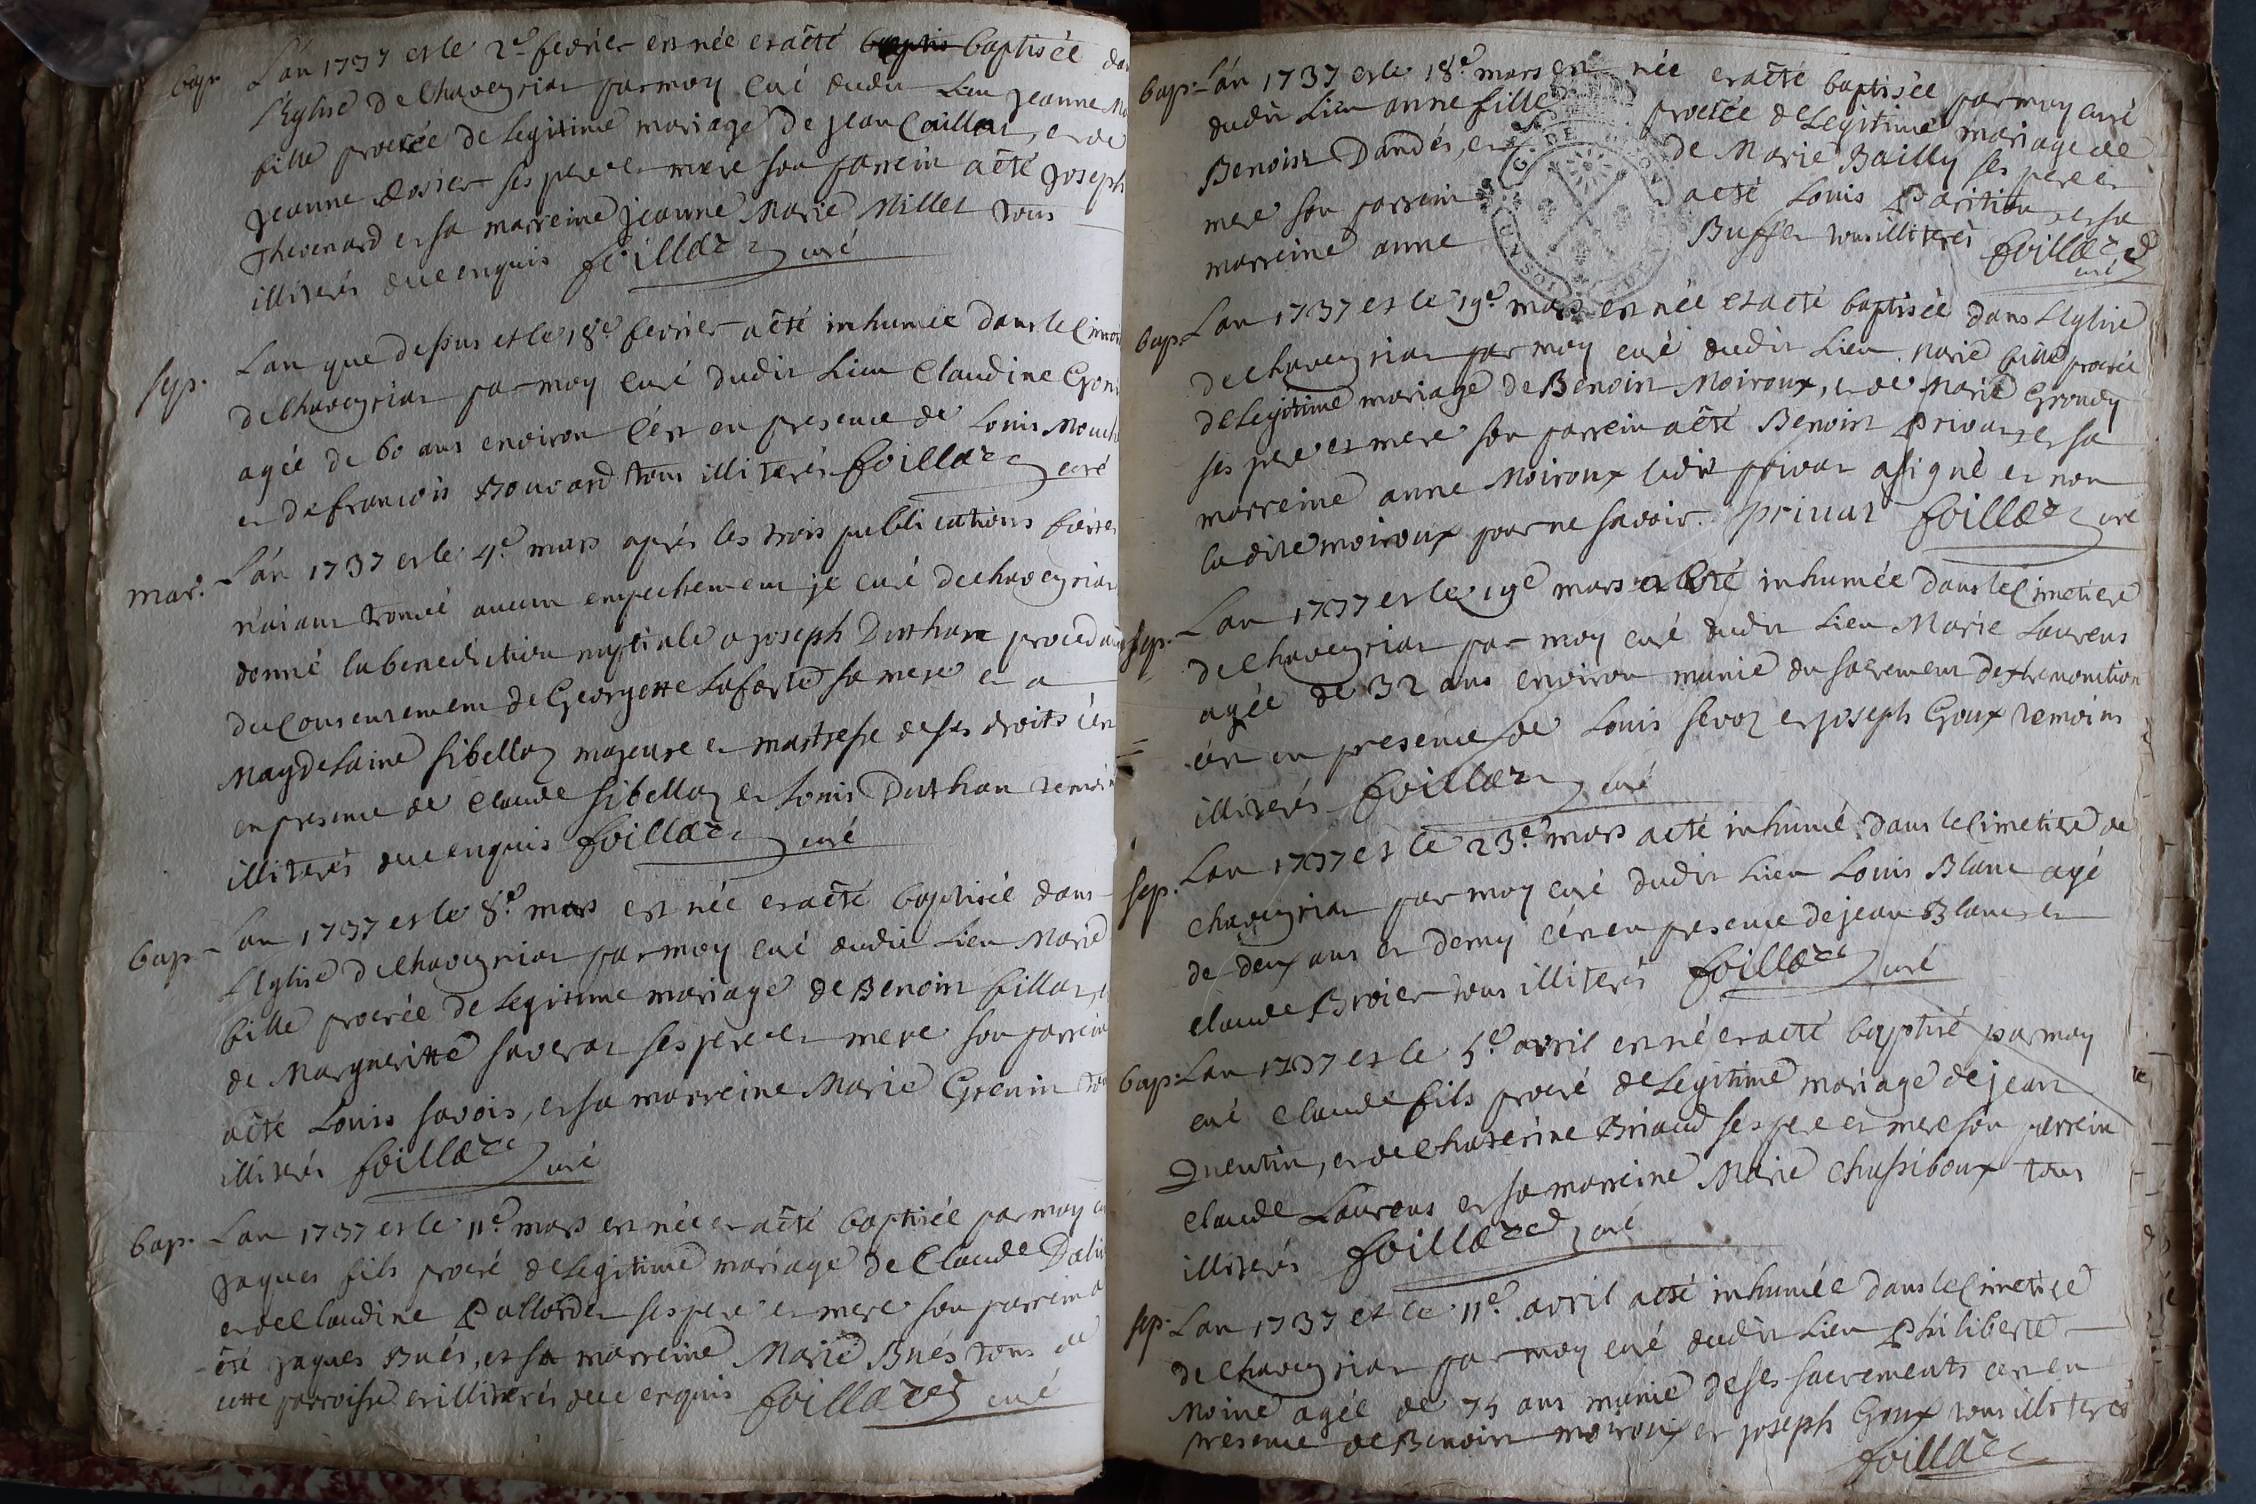 bap. L'an 1737 et le 2e fevrier est née et a été baptisée
l'Eglise de Chaveyriat par moy curé dudit Lieu jeanne
fille procréé de Legitime mariage de jean Caillat, et de
jeanne Rosier ses pere et mere son parrein a été joseph
Thevenard et sa marreine jeanne Marie Millet tous
illiterés de ce enquis foillard curé
sep. L'an que dessus et le 18e fevrier a été inhumée dans le
de Chaveyriat par moy curé dudit Lieu Claudine
agée de 60 ans environ c'est en presence de Louis
et de francois Bouvard tous illiterés foillard curé
mar. L'an 1737 et le 4e mars aprés les trois publications faites
n'aiant trouvé aucun empechement je curé de chaveyriat
donné la benediction nuptiale a joseph Duthan procedant
du Consentement de Georgette Laforte sa mere et a
Magdelaine Sibellas majeure et maitresse de ses droits c'est
en presence de Claude Sibellas et Louis Duthan temoins
illiterés de ce enquis foillard curé
bap. L'an 1737 et le 8e mars est née et a été baptisée dans
l'Eglise de Chaveyriat par moy curé dudit Lieu Marie
fille procréé de Legitime mariage de Benoist fillat,
de Margueritte saverat ses pere et mere son parrein
a été Louis savois, et sa marreine Marie Grenin
illiterés foillard curé
bap. L'an 1737 et le 11e mars est née et a été baptisée par moy
jaques fils procréé de Legitime mariage de Claude
et de Claudine Pallordet ses pere et mere son parrein a
été jaques Bués, et sa marreine Marie Bués tous de
cette parroisse et illiterés de ce enquis foillard curé
bap. L'an 1737 et le 18e mars est née et a été baptisée par moy curé
dudit Lieu anne fille procréé de Legitime mariage de
Benoist Dandés, et de Marie Bailly ses pere et
mere son parrein a été Louis Paritiau et sa
marreine anne Buffet tous illiterés foillard
curé
bap. L'an 1737 et le 19e mars est née et a été baptisée dans l'Eglise
de chaveyriat par moy curé dudit Lieu Marie fille procréé
de Legitime mariage de Benoist Moiroux, et de Marie Grondy
ses pere et mere son parrein a été Benoist Privat et sa
marreine anne Moiroux ledit privat a signé et non
la dite moiroux pour ne savoir. privat foillard curé
sep. L'an 1737 et le 19e mars a été inhumée dans le Cimetiere
de Chaveyriat par moy curé dudit Lieu Marie Laurens
agée de 32 ans environ munie du sacrement d'extremonction
c'est en presence de Louis sevoz et joseph Goux temoins
illiterés foillard curé
sep. L'an 1737 et le 23e mars a été inhumé dans le Cimetiere de
chaveyriat par moy curé dudit Lieu Louis Blanc agé
de deux ans et demy c'est en presence de jean Blanc et
claude Broier tous illiterés foillard curé
bap. L'an 1737 et le 5e avril est né et a été baptisé par moy
curé claude fils procréé de Legitime mariage de jean
Quentin, et de Chaterine Briaud ses pere et mere son parrein
claude Laurens et sa marreine Marie Chassiboux tous
illiterés foillard curé
sep. L'an 1737 et le 11e avril a été inhumée dans le Cimetiere
de chaveyriat par moy curé dudit Lieu Philiberte
Moine agée de 75 ans munie de ses sacrements c'est en
presence de Benoist moiroux et joseph Goux tous illiterés
foillard